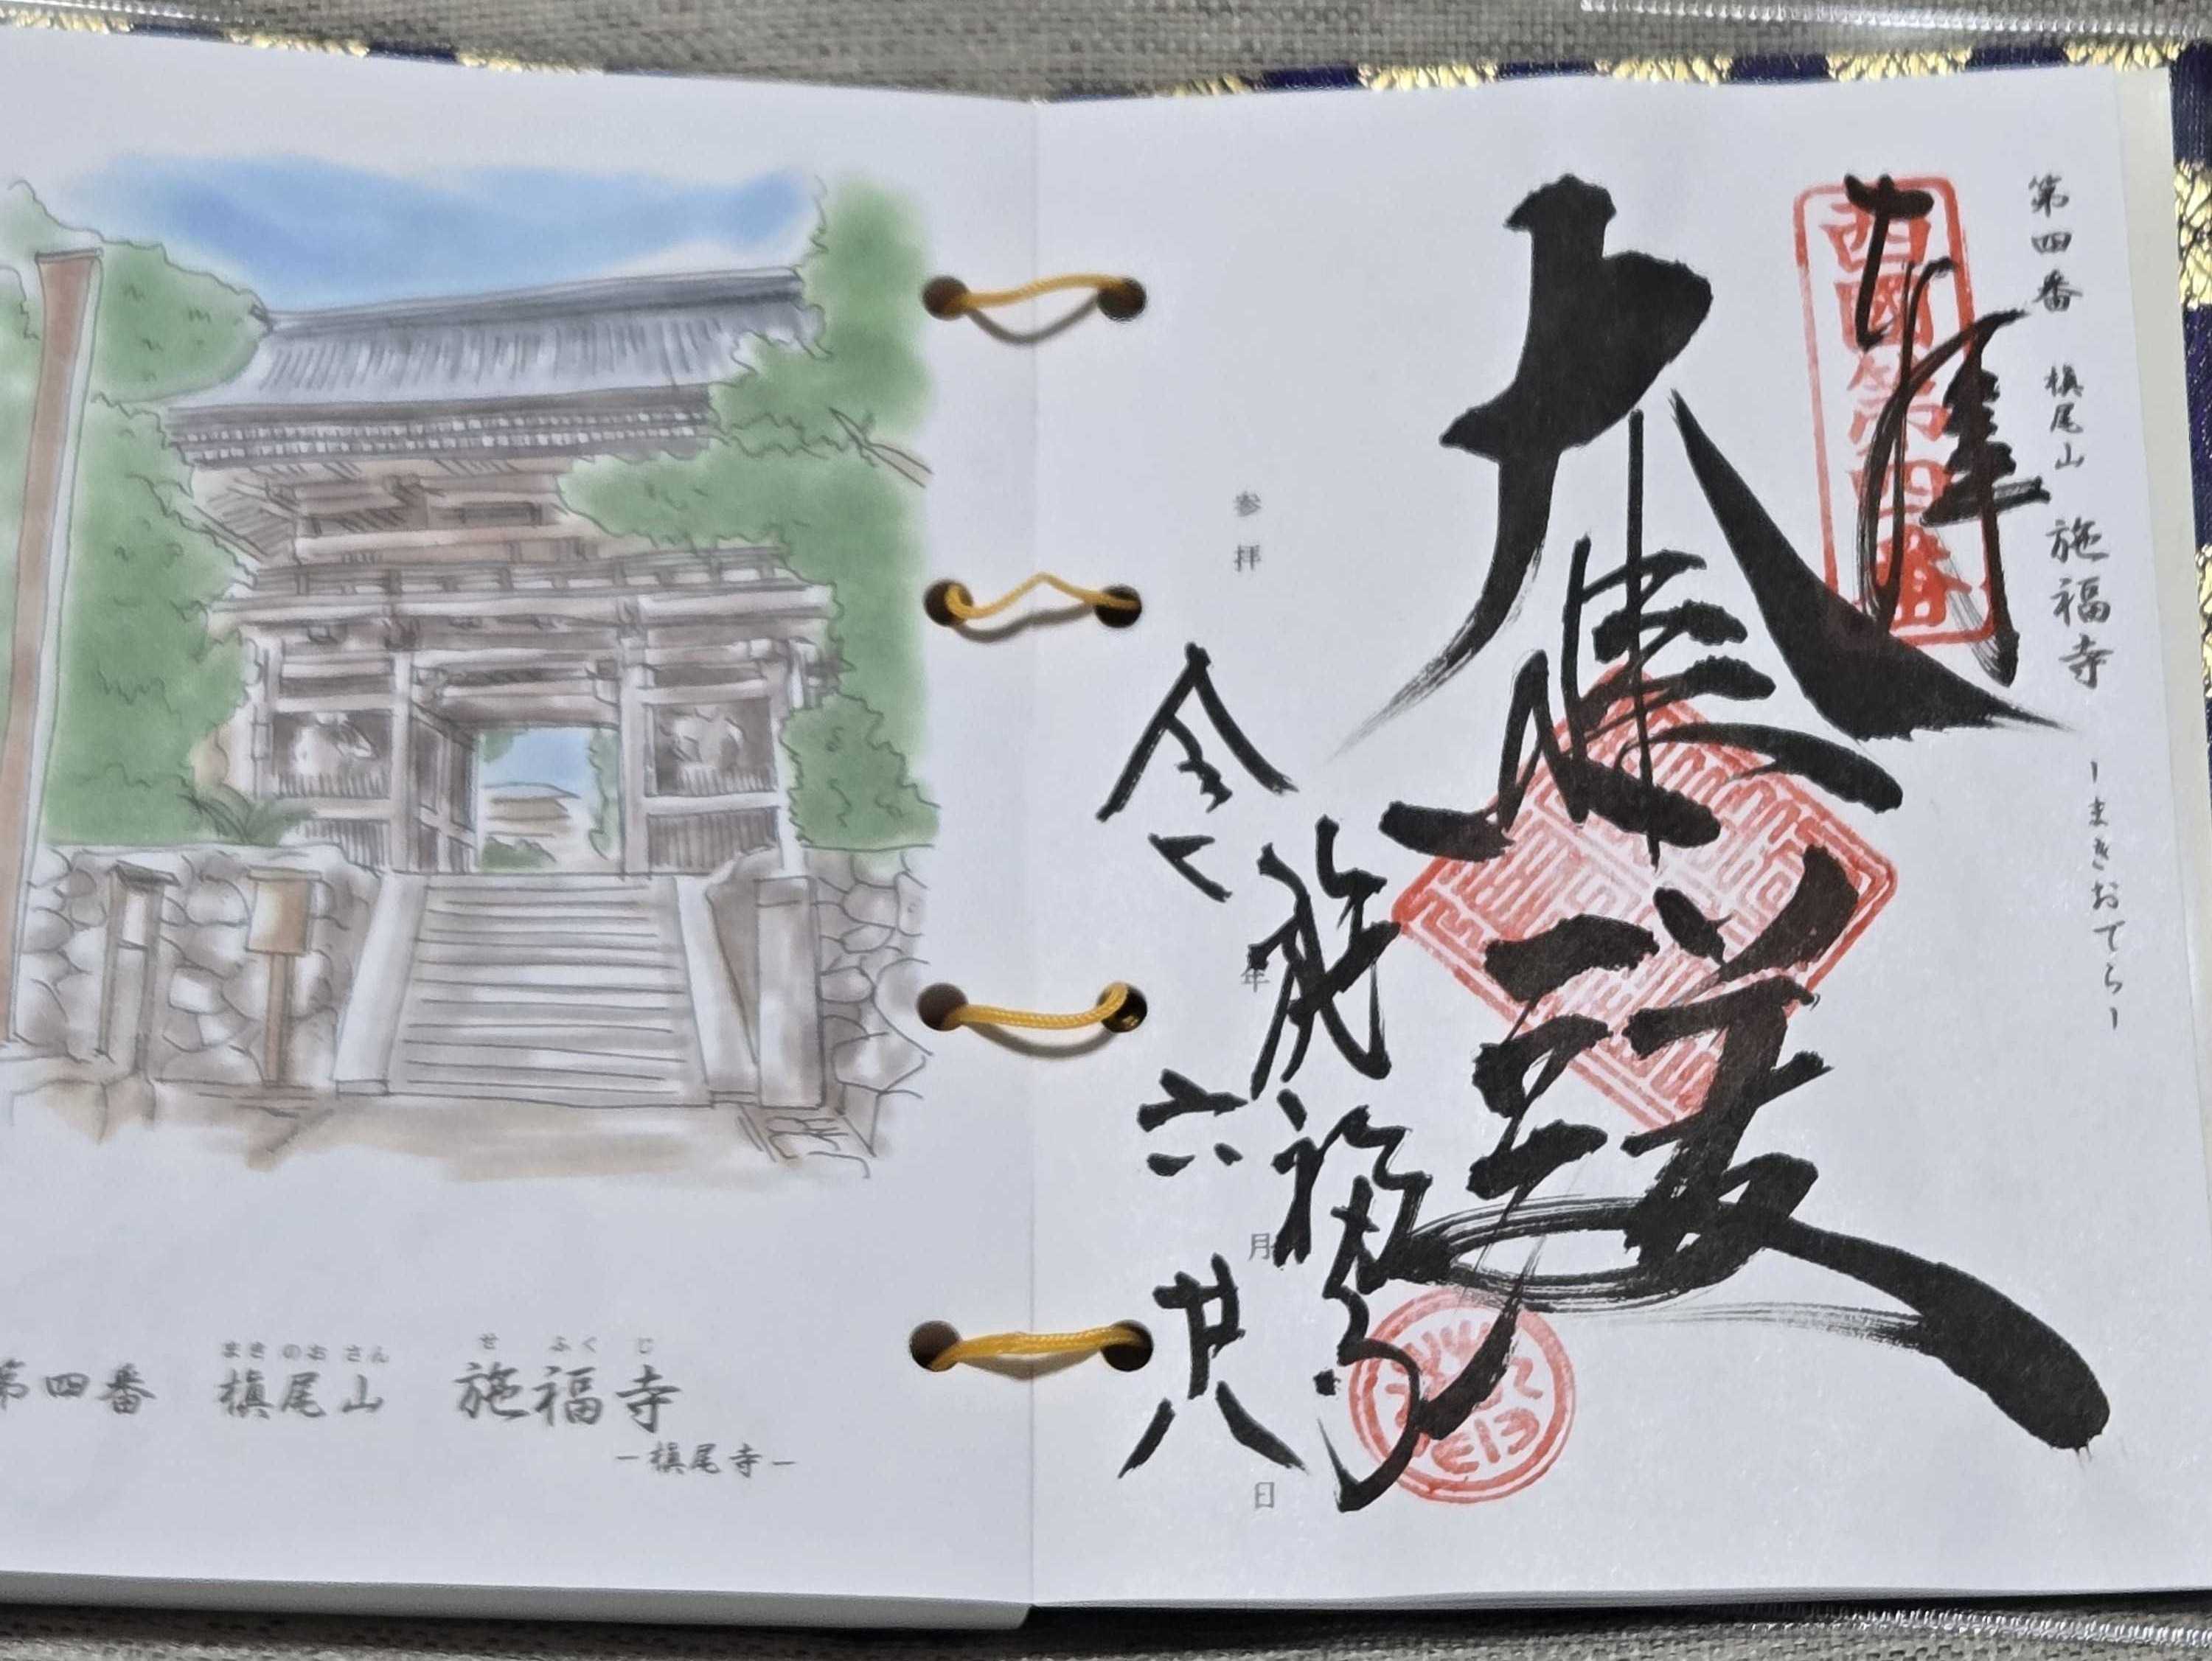 まきのおさん せふくじ
第四番 槇尾山 施福寺
ー槇尾寺ー
第四番 槇尾山 施福寺 ーまきおてらー
奉拝
西國第四番
大悲
施福寺
参拝 年 月 日
令 六 廿八